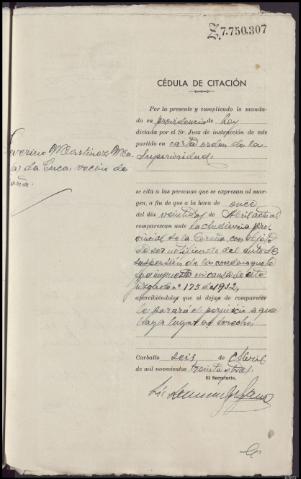 Z.7.750.307
CÉDULA DE CITACIÓN
Por la presente y cumpliendo lo manda-
do en providencia de hoy
dictada por el Sr. Juez de instrucción de este
partido en carta orden de la
Superioridad
Severino Martinez
vecino de
se cita a las personas que se expresan al mar-
gen, a fin de que a la hora de once
del día veintidos de Abril actual
comparezcan ante la Audiencia pro-
vincial de la Coruña con objeto
de ser notificado del auto de
suspensión de la condena que le
fue impuesta en causa de este
juzgado nº 175 de 1932,
apercibiéndoles que al dejar de comparecer
le parará el perjuicio a que
haya lugar en derecho
Carballo seis, de Abril
de mil novecientos treinta y tres.
El Secretario,